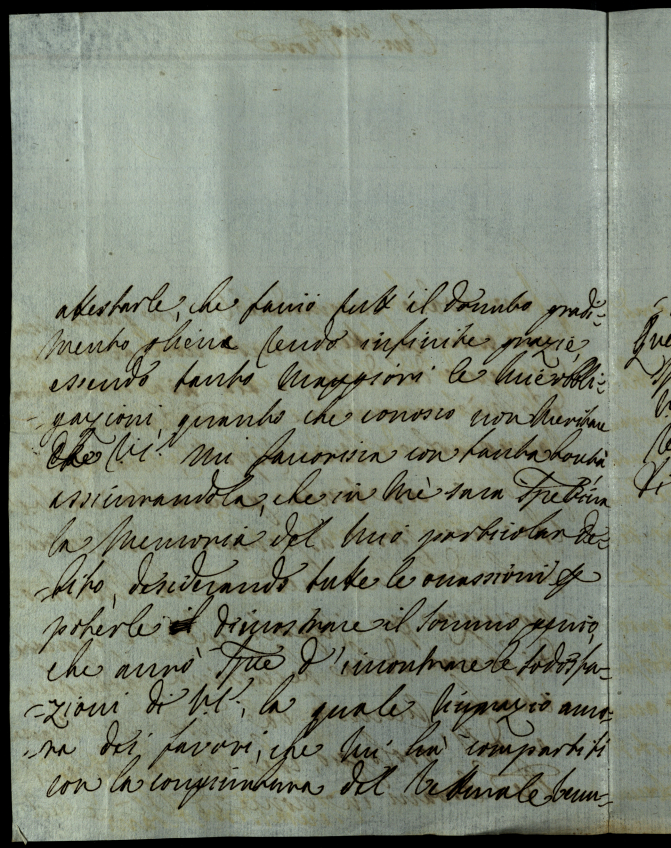 attestarle, che faccio tutt'il dovuto gradi-
mento gliene rendo infinite grazie,
essendo tanto maggiori le mie obbli-
gazioni, quanto che conosco non meritare
che V.S. mi favorisca con tanta bontà
assicurandola, che in me sarà
la memoria del mio particolar de-
bito, desiderando tutte le occassioni
poterle dimostrare il sommo genio,
che avrò d'incontrare le sodisfa-
zioni di V.S., la quale ringrazio anco-
ra dei favori, che mi ha compartiti
con la congiuntura del
Que